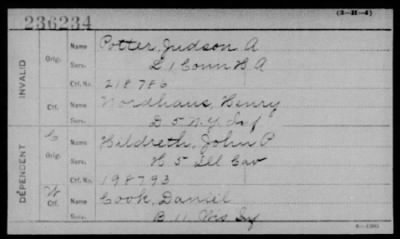 236234
(3-H-4)
INVALID
Orig.
Name Potter, Judson A
Serv. L 1 Conn H A
Ctf. No. 218786
Ctf.
Name Nordhaus, Henry
Serv. D 5 N.Y. Inf
DEPENDENT
C
Orig.
Name Hildreth, John P
Serv. H 5 Ill Cav
Ctf. No. 198793
W
Ctf.
Name Cook, Daniel
Serv. B 11 Wis Inf